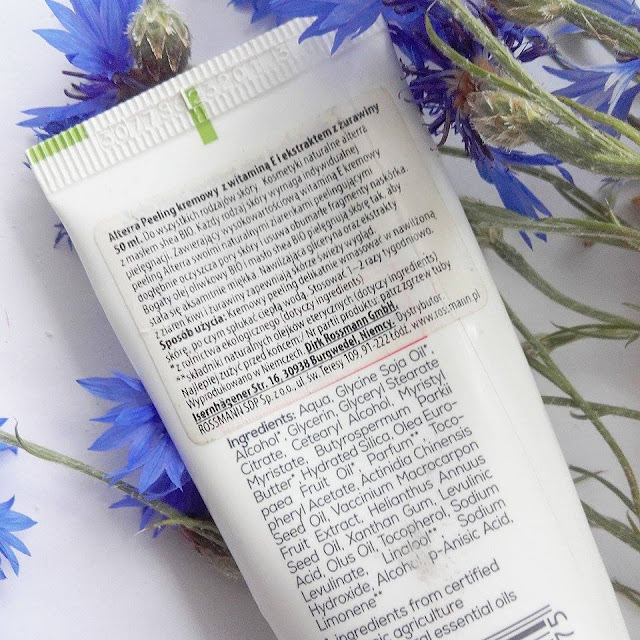 Alterra Peeling kremowy z witaminą E i ekstraktem z żurawiny
50 ml. Do wszystkich rodzajów skóry. Kosmetyki naturalne alterra
z masłem shea BIO. Każdy rodzaj skóry wymaga indywidualnej
pielęgnacji. Zawierający wysokowartościową witaminę E kremowy
peeling Alterra naturalnymi ziarenkami pielęgnującymi
dogłębnie oczyszcza pory oraz usuwa obumarłe naskórka.
Bogaty olej oliwkowy BIO i masło shea BIO pielęgnują skórę tak, aby
stała się aksamitnie miękka. Nawilżająca gliceryna oraz ekstrakty
z kiwi i żurawiny zapewniają skórze świeży wygląd.
Sposób użycia: Kremowy peeling delikatnie wmasować w nawilżoną
skórę, po czym spłukać ciepłą wodą. Stosować 1 - 2 razy tygodniowo.
* z rolnictwa ekologicznego (dotyczy ingredients)
** składniki naturalnych olejków eterycznych (dotyczy ingredients)
Najlepiej zużyć przed końcem / Nr partii produktu: patrz zgrzew tuby
Wyprodukowano w Niemczech. Dirk Rossmann GmbH,
Isernhägener Str. 16, 30938 Burgwedel, Niemcy. Dystrybutor:
ROSSMANN SDP Sp. z o.o. ul. Św. Teresy 109, 91-222 Łódź, www.rossmann.pl
Ingredients: Aqua, Glycine Soja Oil*,
Alcohol*, Glycerin, Glyceryl Stearate
Citrate, Cetearyl Alcohol, Myristyl
Myristate, Butyrospermum Parkii
Butter*, Hydrated Silica, Olea Euro-
paea Fruit Oil*, Parfum**, Toco-
pheryl Acetate, Actinidia Chinensis
Seed Oil, Vaccinium Macrocarpon
Fruit Extract, Helianthus Annuus
Seed Oil, Xanthan Gum, Levulinic
Acid, Olus Oil, Tocopherol, Sodium
Levulinate, Linalool**, Sodium
Hydroxide, Alcohol, p-Anisic Acid,
Limonene**
* Ingredients from certified
agriculture
essential oils